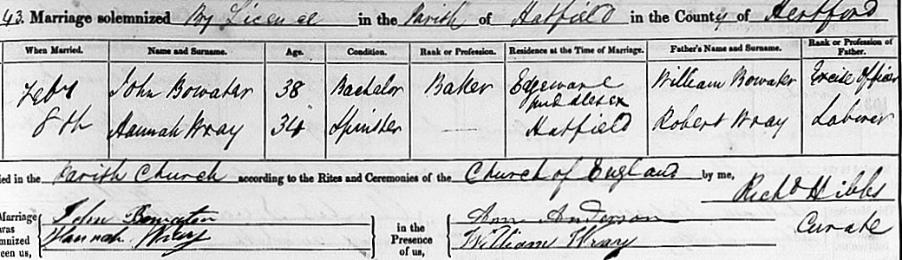 43. Marriage solemnized By License in the Parish of Hatfield in the County of Hertford
When Married. Name and Surname. Age. Condition. Rank or Profession. Residence at the Time of Marriage. Father's Name and Surname. Rank or Profession of Father.
Feby John Bowater 38 Bachelor Baker Edgeware Middlesex William Bowater Excise Officer
8th Hannah Wray 34 Spinster Hatfield Robert Wray Laborer
ied in the Parish Church according to the Rites and Ceremonies of the Church of England by me,
Richd Hibbs
Curate
Marriage was mnized een us,
John Bowater
Hannah Wray
in the Presence of us,
Ann Anderson
William Wray